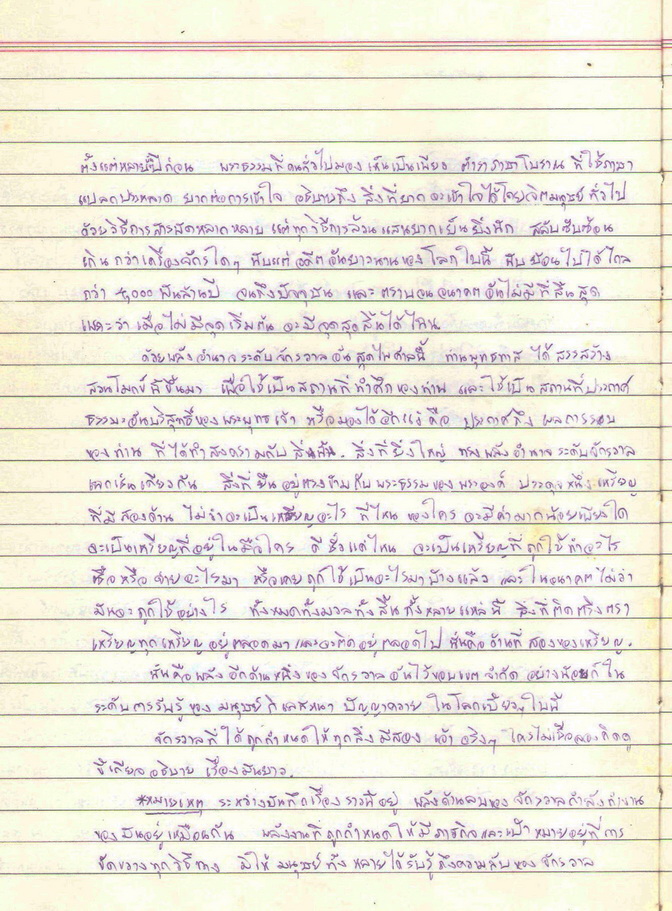 ตั้งแต่หลายปีก่อน พระธรรมที่คนทั่วไปมองเห็นเป็นเพียง ตำราภาษาโบราณ ที่ใช้ภาษา
แปลกประหลาด ยากต่อการเข้าใจ อธิบายถึง สิ่งที่ยากจะเข้าใจได้โดยจิตมนุษย์ ทั่วไป
ด้วยวิธีการสารพัดหลากหลาย แต่ทุกวิธีการล้วนแสนยากเย็นยิ่งนัก สลับซับซ้อน
เกินกว่าเครื่องจักรใดๆ นับแต่อดีตอันยาวนานของโลกใบนี้ นับย้อนไปได้ไกล
กว่า 4,000 พันล้านปี จนถึงปัจจุบัน และตราบจนอนาคตอันไม่มีที่สิ้นสุด
เพราะว่า เมื่อไม่มีจุดเริ่มต้น จะมีจุดสุดสิ้นได้ไหน
ด้วยพลังอำนาจระดับจักรวาลอันสุดไพศาลนี้ ท่านพุทธทาส ได้สรรสร้าง
สวนโมกข์ที่ขึ้นมา เพื่อใช้เป็นสถานที่ทำศึกของท่าน และใช้เป็นสถานที่ประกาศ
ธรรมะอันบริสุทธิ์ของพระพุทธเจ้า หรือมองได้อีกแง่คือ ประกาศถึง ผลการรบ
ของท่าน ที่ได้ทำสงครามกับ สิ่งนั้น. สิ่งที่ยิ่งใหญ่ ทรงพลังอำนาจระดับจักรวาล
เฉกเช่นเดียวกัน สิ่งที่ยืนอยู่ตรงข้ามกับพระธรรมของพระองค์ ประดุจหนึ่งเหรียญ
ที่มีสองด้าน ไม่ว่าจะเป็นเหรียญอะไร ที่ไหน ของใคร จะมีค่ามากน้อยเพียงใด
จะเป็นเหรียญที่อยู่ในมือใคร ดี ชั่วแค่ไหน จะเป็นเหรียญที่ถูกใช้ทำอะไร
ซื้อหรือจ่ายอะไรมา หรือเคยถูกใช้เป็นอะไรมาบ้างแล้ว และในอนาคตไม่ว่า
มันจะถูกใช้อย่างไร ทั้งหมดทั้งมวลทั้งสิ้นทั้งหลายแหล่นี้ สิ่งที่ติดตรึงตรา
เหรียญทุกเหรียญอยู่ตลอดมา และจะติดอยู่ตลอดไป นั่นคือด้านที่สองของเหรียญ.
นั่นคือพลังอีกด้านหนึ่งของจักรวาลอันไร้ขอบเขตจำกัด อย่างน้อยก็ใน
ระดับการรับรู้ของ มนุษย์กิเลสหนา ปัญญาควาย ในโลกเบี้ยวๆใบนี้
จักรวาลที่ได้ถูกกำหนดให้ทุกสิ่งมีสอง เอ้า จริงๆ ใครไม่เชื่อลองคิดดู
ขี้เกียจอธิบาย เรื่องมันยาว.
*หมายเหตุ ระหว่างบันทึกเรื่องราวนี้อยู่ พลังด้านลบของจักรวาลกำลังทำงาน
ของมันอยู่เหมือนกัน พลังงานที่ถูกกำหนดให้มีภารกิจและเป้าหมายอยู่ที่การ
ขัดขวางทุกวิถีทาง มิให้มนุษย์ทั้งหลายได้รับรู้ถึงความลับของจักรวาล